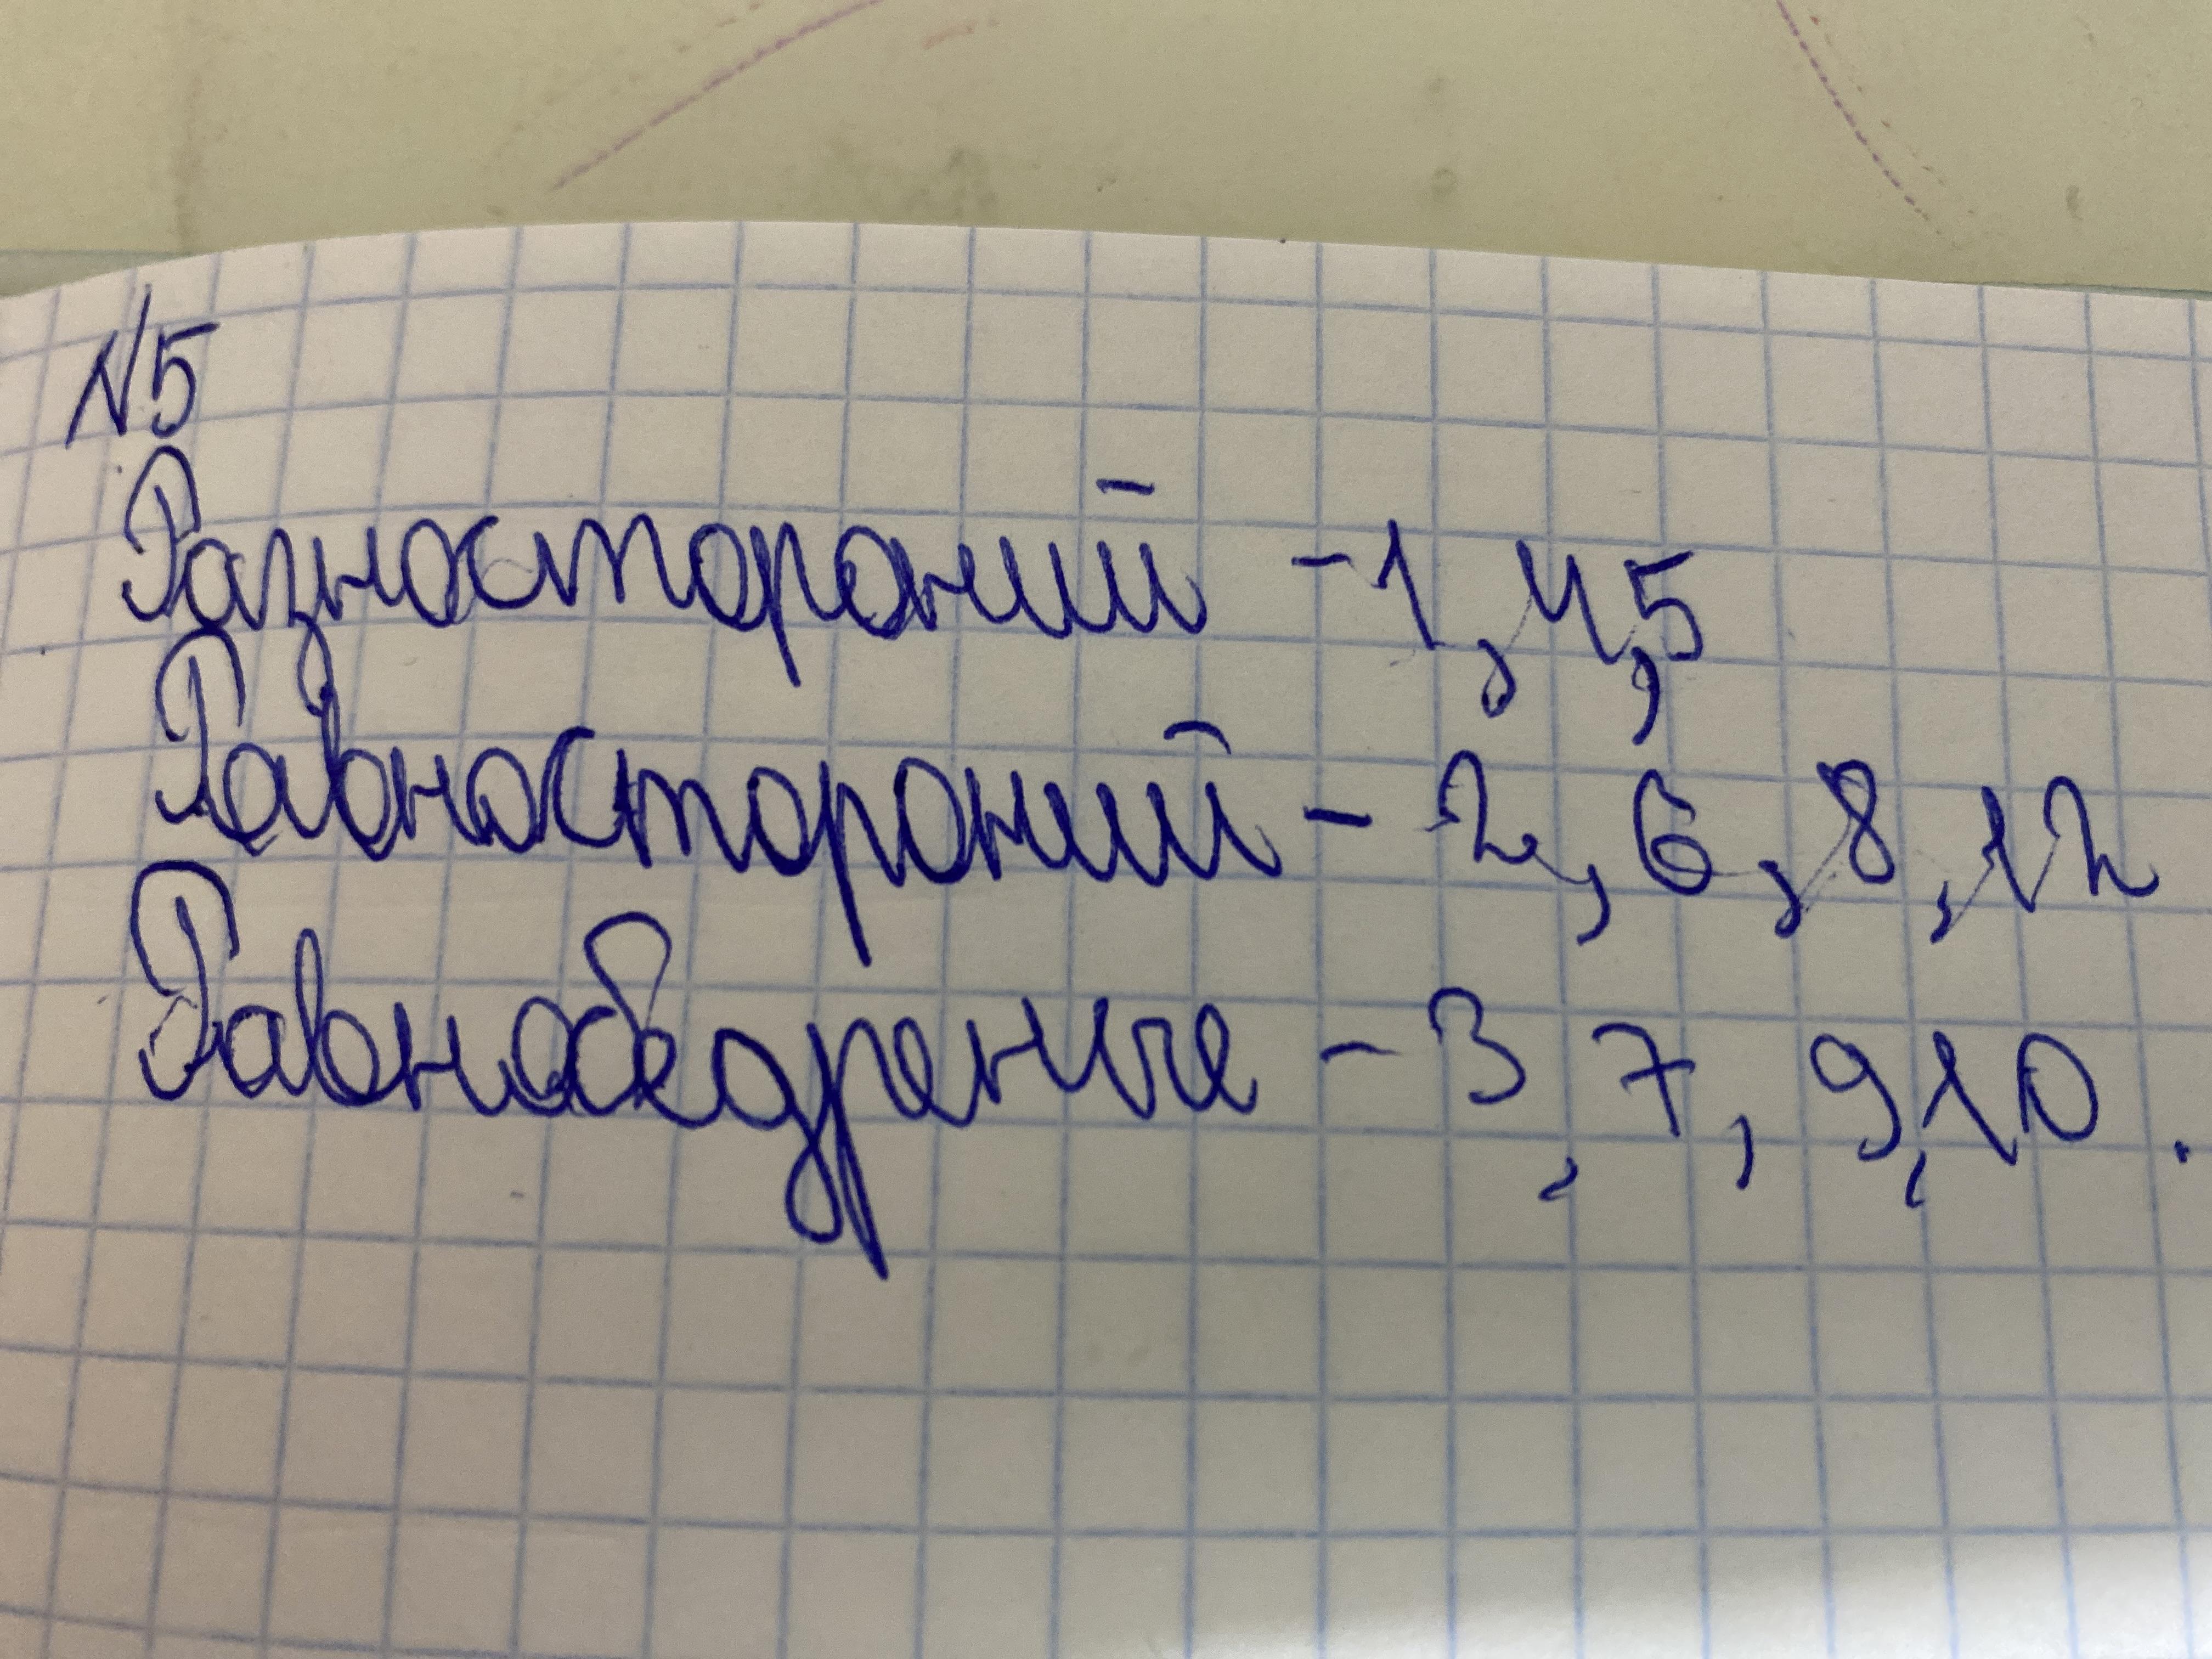 №5
Разностороний - 1, 4, 5
Равностороний - 2, 6, 8, 12
Равнобедреные - 3, 7, 9, 10.